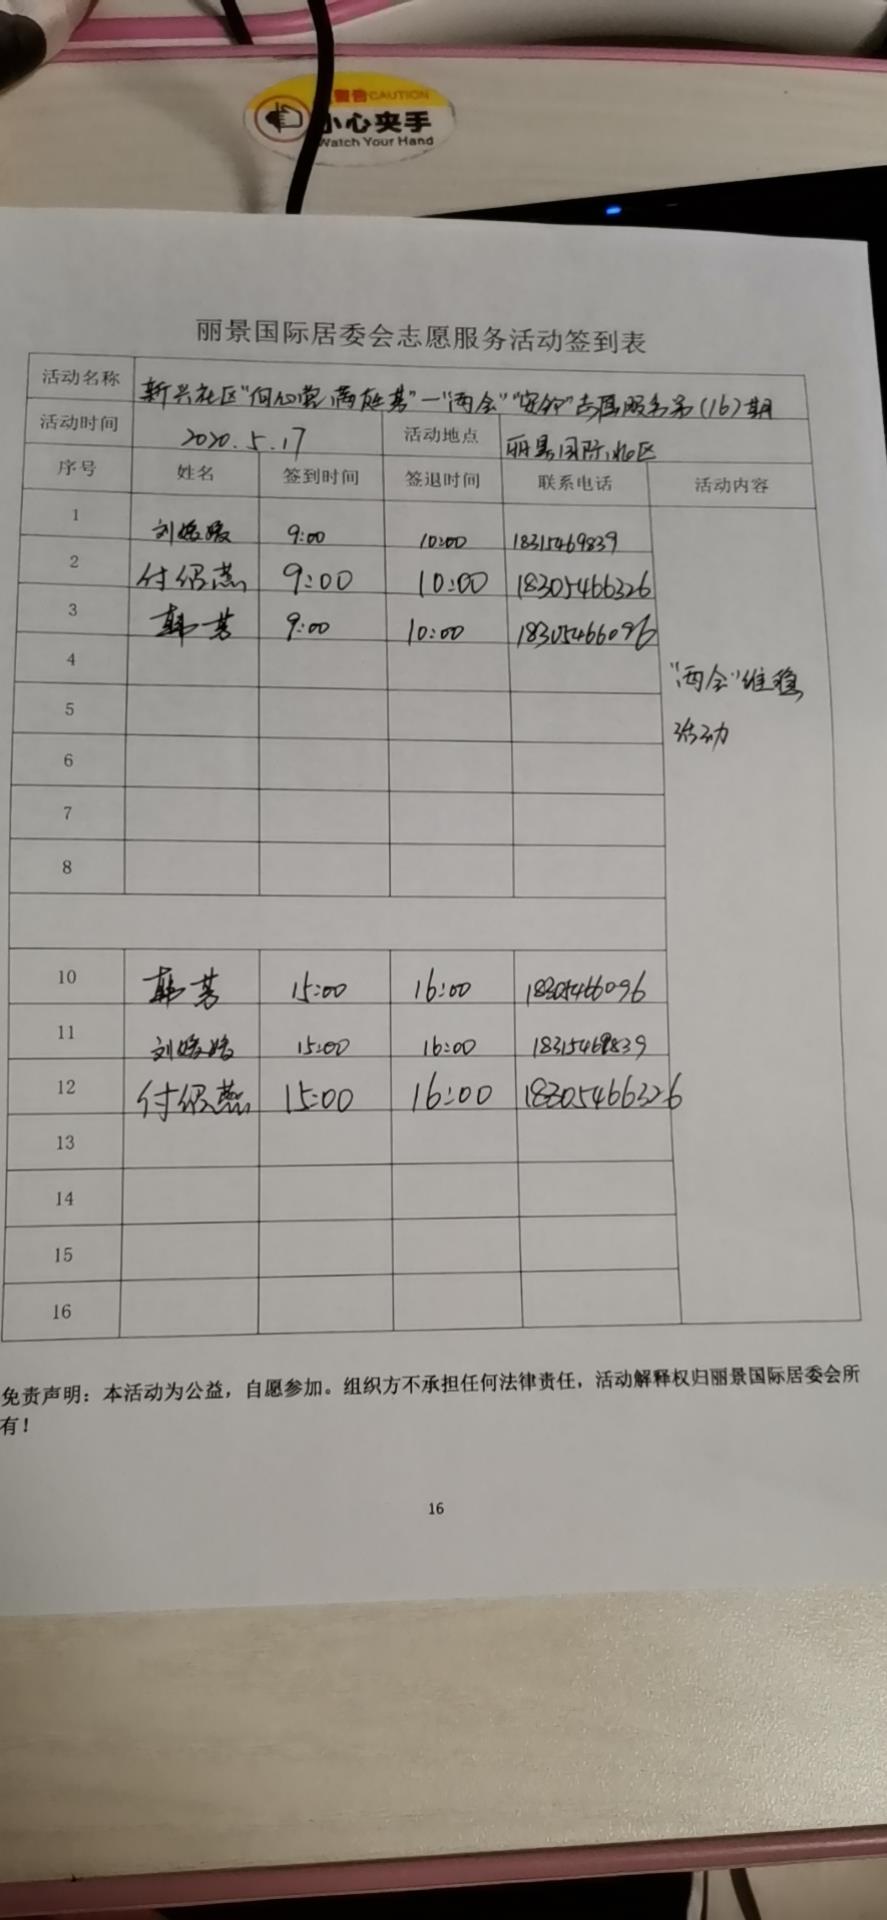 警告CAUTION
小心夹手
Watch Your Hand
丽景国际居委会志愿服务活动签到表
活动名称 新兴社区"向心营 满庭芳"一"两会""安保"志愿服务第(16)期
活动时间 2020.5.17 活动地点 丽景国际小区
序号 姓名 签到时间 签退时间 联系电话 活动内容
1 刘媛媛 9:00 10:00 18315469839
2 付 燕 9:00 10:00 18305466326
3 韩芳 9:00 10:00 18305466096
4
"两会"维稳
5
活动
6
7
8
10 韩芳 15:00 16:00 18305466096
11 刘媛媛 15:00 16:00 18315469839
12 付 燕 15:00 16:00 18305466326
13
14
15
16
免责声明：本活动为公益，自愿参加。组织方不承担任何法律责任，活动解释权归丽景国际居委会所
有！
16